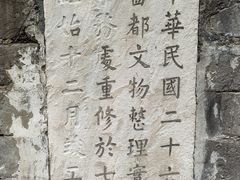 華民國二十六
都文物整理實
務處重修於七
始十二月竣工